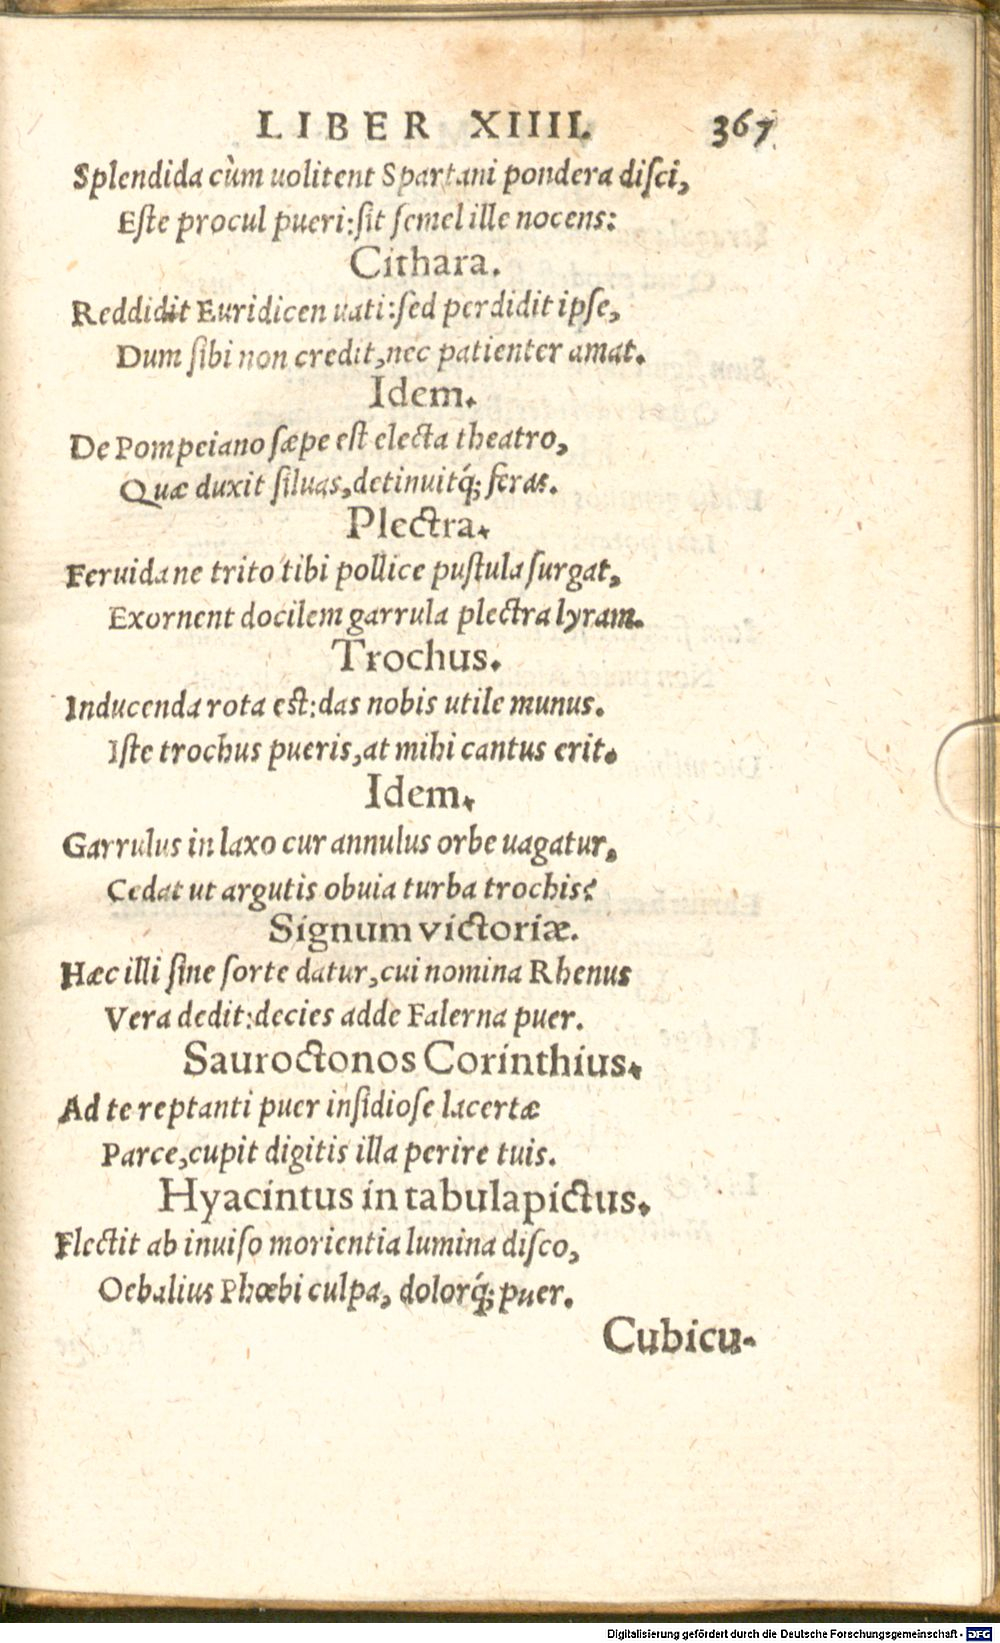 LIBER XIIII. 367
Splendida cùm uolitent Spartani pondera disci,
Este procul pueri: sit semel ille nocens:
Cithara.
Reddidit Euridicen uati: sed perdidit ipse,
Dum sibi non credit, nec patienter amat.
Idem.
De Pompeiano sæpe est eiecta theatro,
Quæ duxit siluas, detinuitq́; feras.
Plectra.
Feruida ne trito tibi pollice pustula surgat,
Exornent docilem garrula plectra lyram.
Trochus.
Inducenda rota est: das nobis utile munus.
Iste trochus pueris, at mihi cantus erit.
Idem.
Garrulus in laxo cur annulus orbe uagatur,
Cedat ut argutis obuia turba trochis?
Signum victoriæ.
Hæc illi sine sorte datur, cui nomina Rhenus
Vera dedit: decies adde Falerna puer.
Sauroctonos Corinthius.
Ad te reptanti puer insidiose lacertæ
Parce, cupit digitis illa perire tuis.
Hyacintus in tabula pictus.
Flectit ab inuiso morientia lumina disco,
Oebalius Phœbi culpa, dolorq́; puer.
Cubicu-
Digitalisierung gefördert durch die Deutsche Forschungsgemeinschaft - DFG